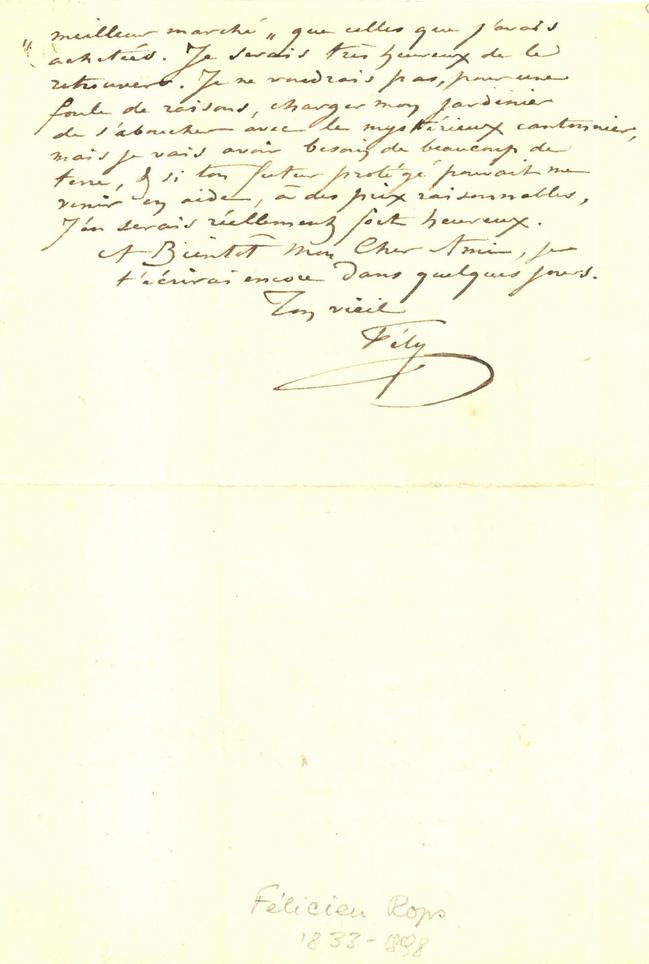 " meilleur marché " que celles que j'avais
achetées. Je serais très heureux de le
retrouver. Je ne voudrais pas, pour une
foule de raisons, charger mon jardinier
de s'aboucher avec le mystérieux cantonnier,
mais je vais avoir besoin de beaucoup de
terre, & si ton futur protégé pouvait me
venir en aide, à des prix raisonnables,
J'en serais réellement fort heureux.
A Bientôt Mon Cher Ami, je
t'écrirai encore dans quelques jours.
Ton vieil
Fély
Félicien Rops
1833-1898